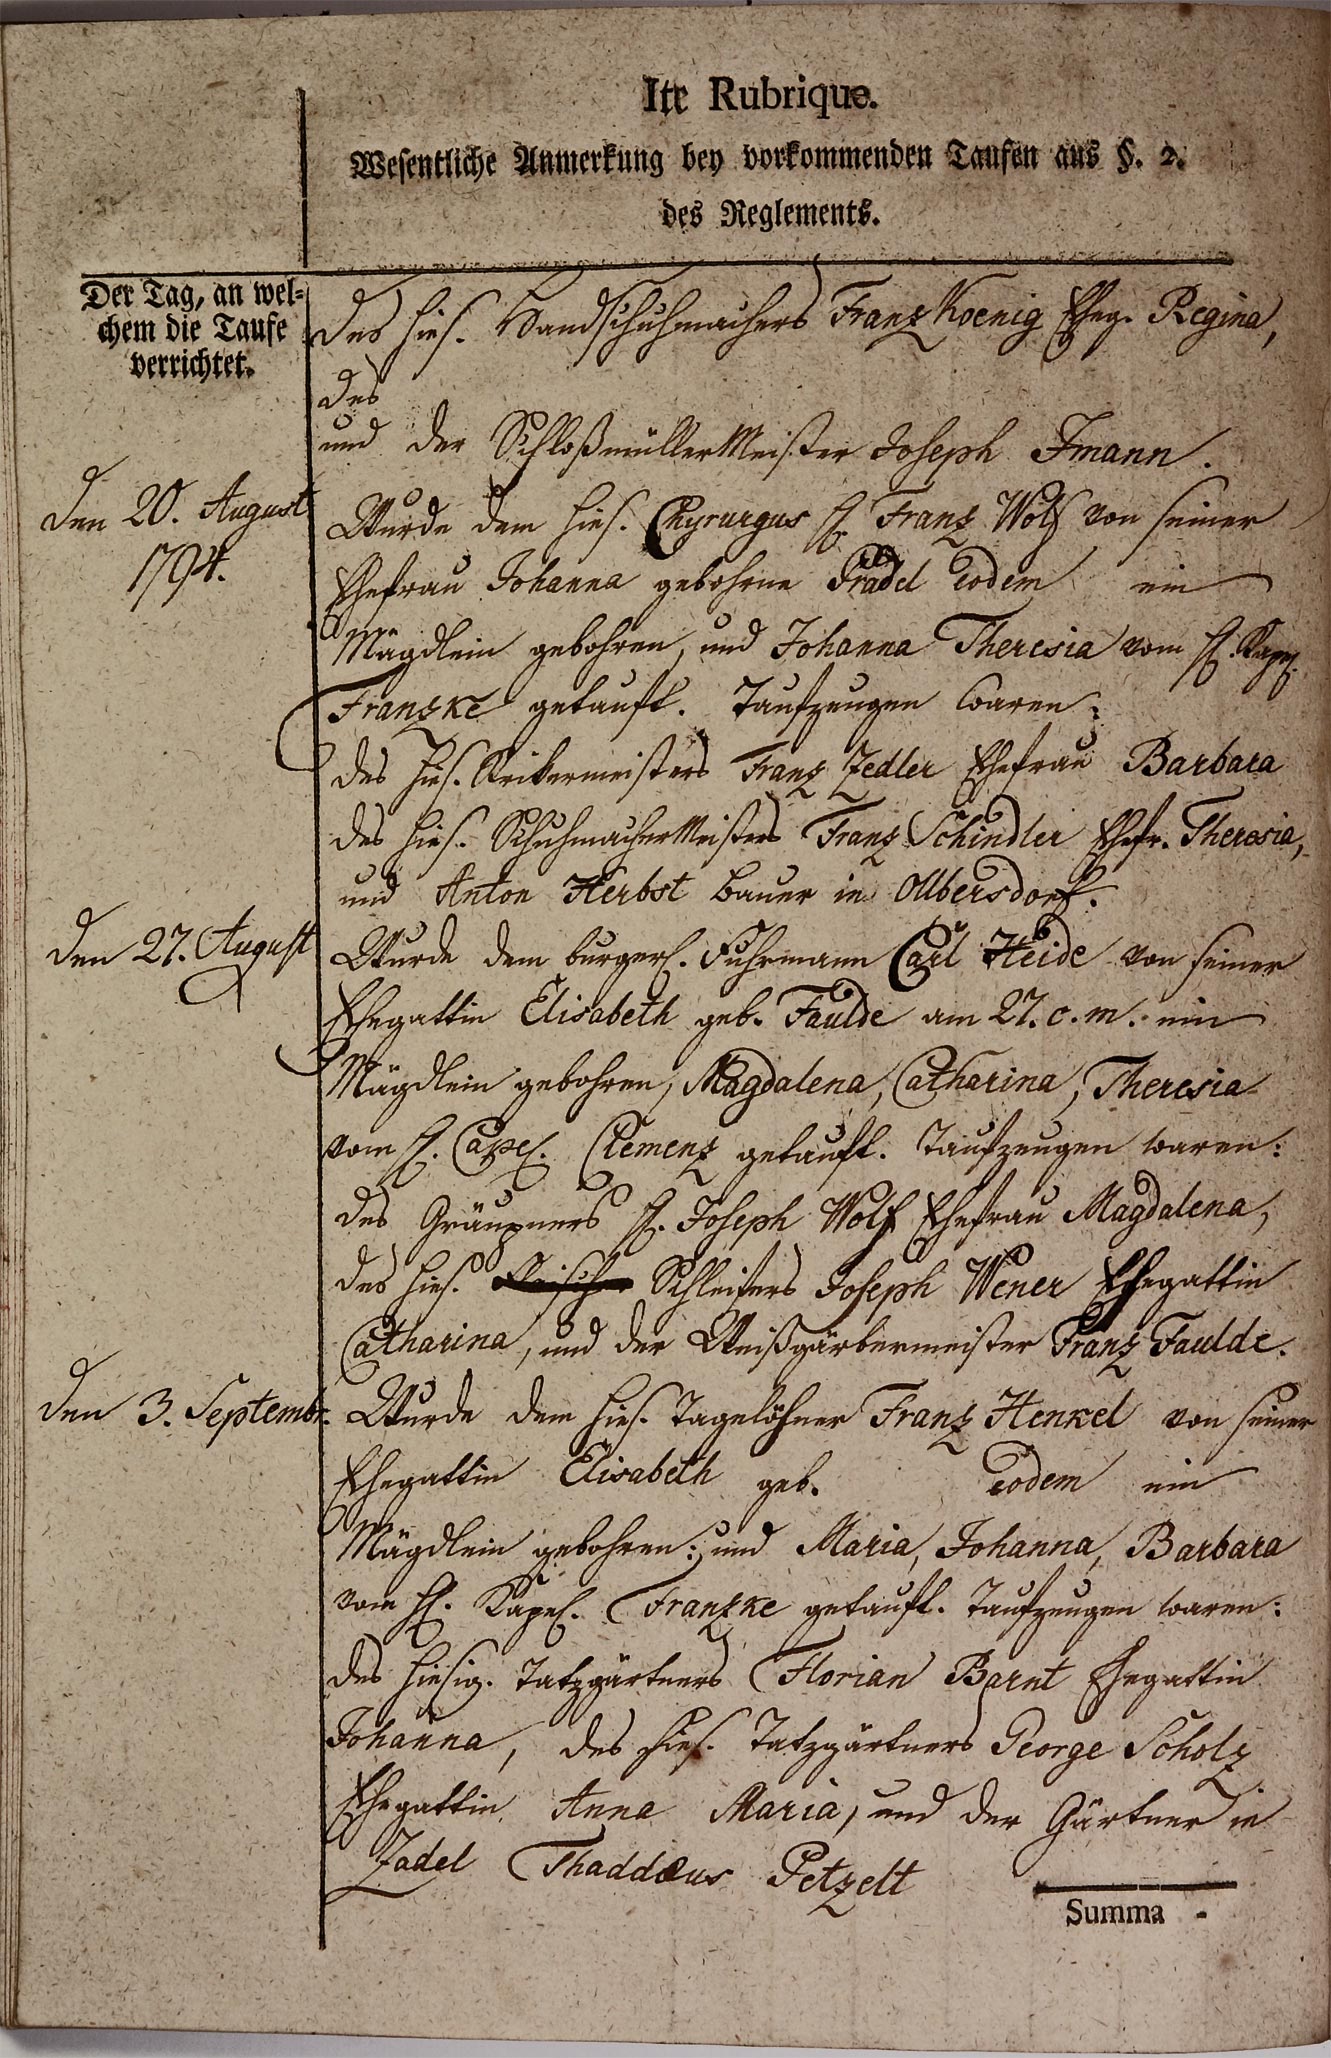 Ite Rubrique.
Wesentliche Anmerkung bey vorkommenden Taufen aus §. 2.
des Reglements.
Der Tag, an wel-
chem die Taufe
verrichtet.
des hies. Handschuhmachers Franz Koenig Eheg. Regina,
des
und der Schloßmüller Meister Joseph Jmann.
den 20. August
1794.
Wurde dem hies. Chyrurgus H. Franz Wolf von seiner
Ehefrau Johanna gebohrne Prädel eodem ein
Mägdlein gebohren, und Johanna Theresia vom H. Kapl.
Franzke getauft. Taufzeugen waren:
des hies. Strikermeisters Franz Zedler Ehefrau Barbara
des hies. Schuhmacher Meisters Franz Schindler Ehefr. Theresia,
und Anton Herbst Bauer in Olbersdorf.
den 27. August
Wurde dem burgerl. Fuhrmann Carl Heide von seiner
Ehegattin Elisabeth geb. Faulde am 27. c. m. ein
Mägdlein gebohren, Magdalena, Catharina, Theresia
vom H. Capel. Clemenz getauft. Taufzeugen waren:
des Gräupners H. Joseph Wolf Ehefrau Magdalena,
des hies. Schleifers Joseph Wener Ehegattin
Catharina, und der Weißgärbermeister Franz Faulde.
den 3. Septembr.
Wurde dem hies. Tagelöhner Franz Henkel von seiner
Ehegattin Elisabeth geb. eodem ein
Mägdlein gebohren: und Maria, Johanna, Barbara
vom H. Kapel. Franzke getauft. Taufzeugen waren:
des hiesig. Tatzgärtners Florian Barnt Ehegattin
Johanna, des hies. Tatzgärtners George Scholz
Ehegattin Anna Maria, und der Gärtner in
Zadel Thaddæus Petzelt
Summa -